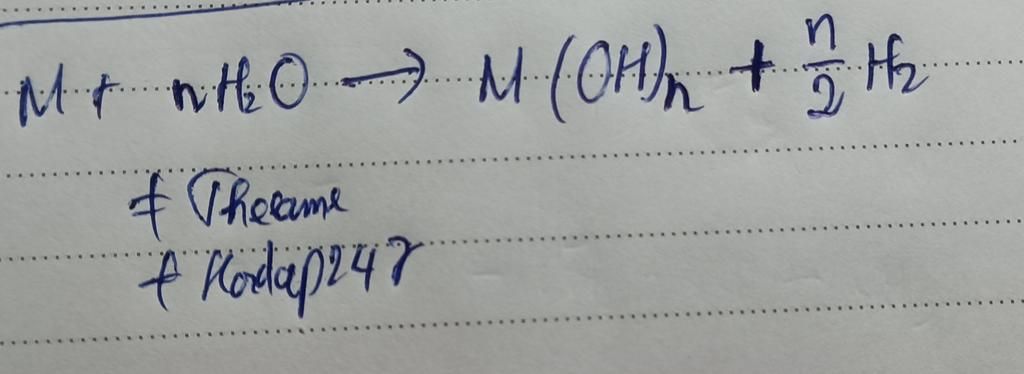 M + nH₂O → M(OH)n + n/2 H₂
+ Theeame
+ Hodap247